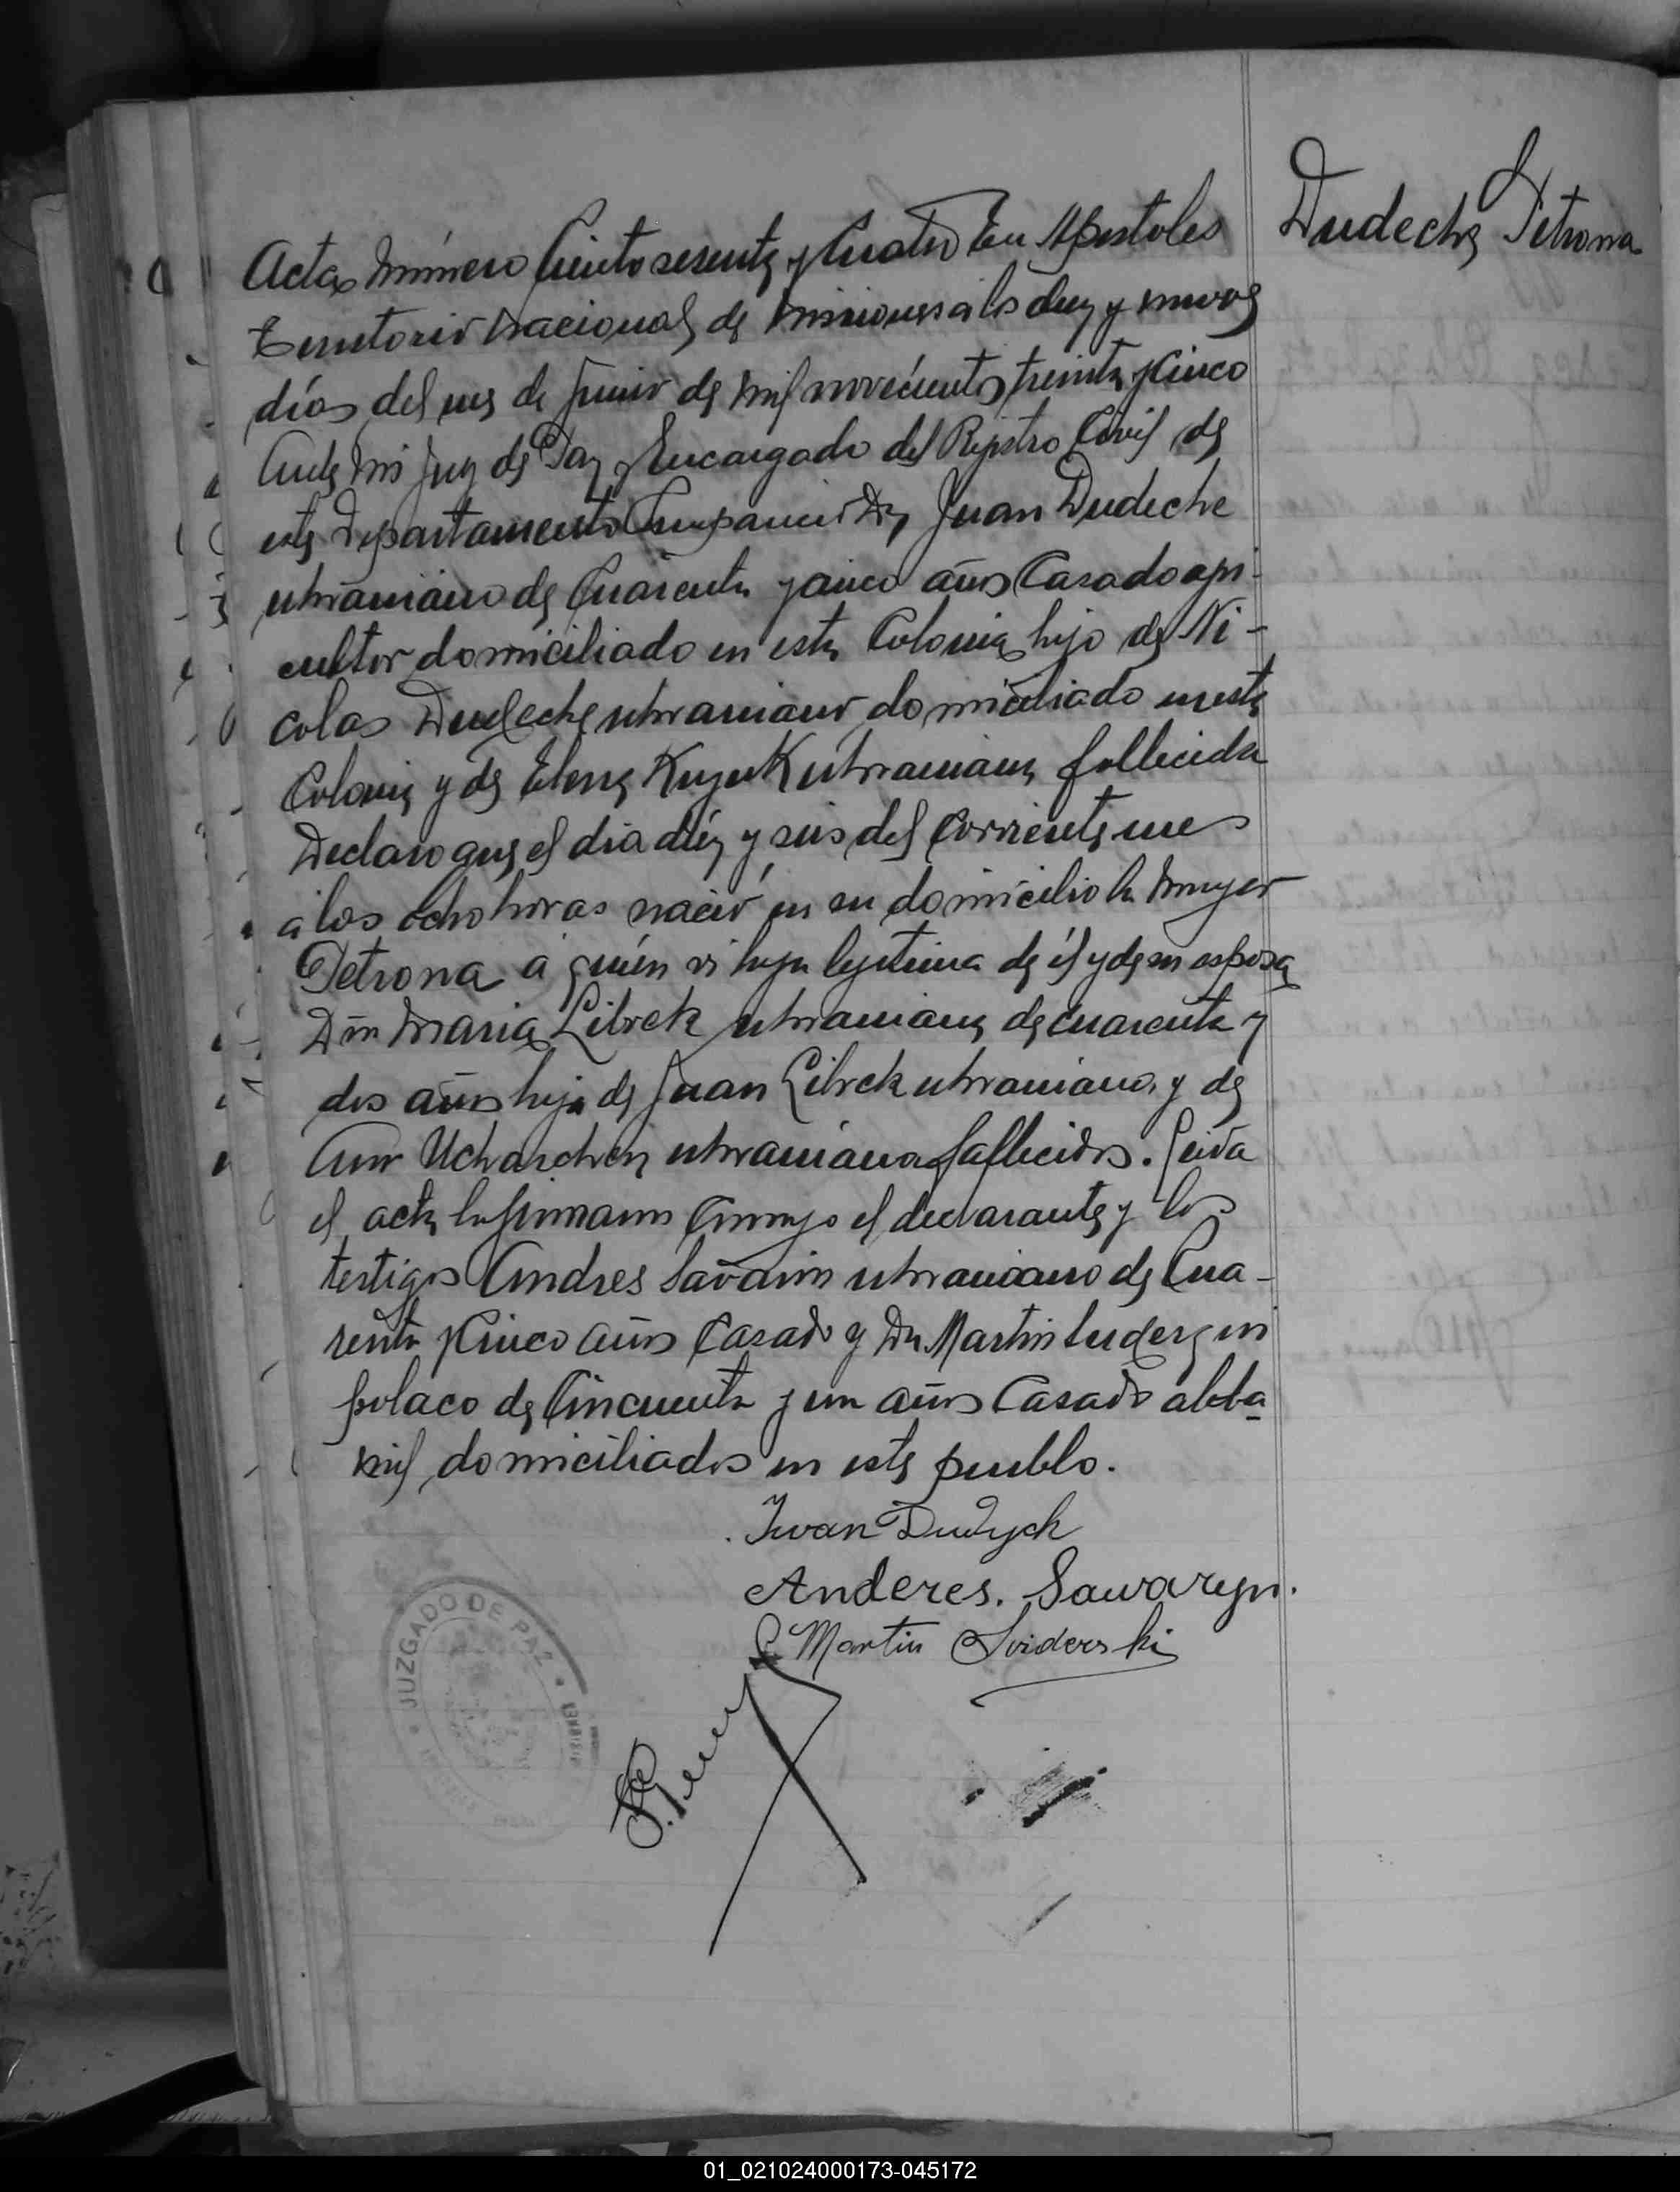 Dudeche Petrona
Acta Número Ciento sesenta y Cuatro En Apostoles
Territorio Nacional de Misiones a los diez y nueve
días del mes de Junio de mil novecientos treinta y Cinco
Ante mi Juez de Paz y Encargado del Rejistro Civil de
este Departamento Comparecio Dn Juan Dudeche
ukraniano de Cuarenta y cinco años Casado agri-
cultor domiciliado en esta Colonia hijo de Ni-
colas Dudeche ukraniano domiciliado en esta
Colonia y de Elena ukraniana fallecida
Declaro que el dia diez y seis del corriente mes
a las ocho horas nació en su domicilio la mujer
Petrona a quién vi hija lejitima de él y de su esposa
Dña Maria Librek ukraniana de cuarenta y
dos años hija de Juan Librek ukraniano y de
ukraniana fallecidos. Leida
el acta la firmaron Conmigo el declarante y los
testigos Andres Savarin ukraniano de Cua-
renta y Cinco años Casado y Dn Martin
polaco de Cincuenta y un años Casado alba
ñil domiciliados en este pueblo.
Iwan Dudych
Anderes. Sawaryn.
Martin Sviderski
JUZGADO DE PAZ
01_021024000173-045172